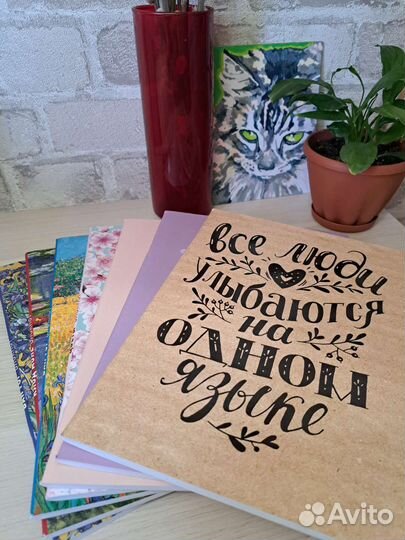 все люди
улыбаются
на
ОДНОМ
языке
Avito